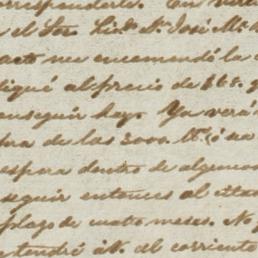 orresponderle. En virtu
n el Sor. Licdo. Dn. José Ma.
acto me encomendó la
diqué al precio de $68.
nseguir hoy. Ya verá
bra de las 3000
espera dentro de algunos
seguir entonces al
plazo de cuatro meses. No
tendré á V. al corriente